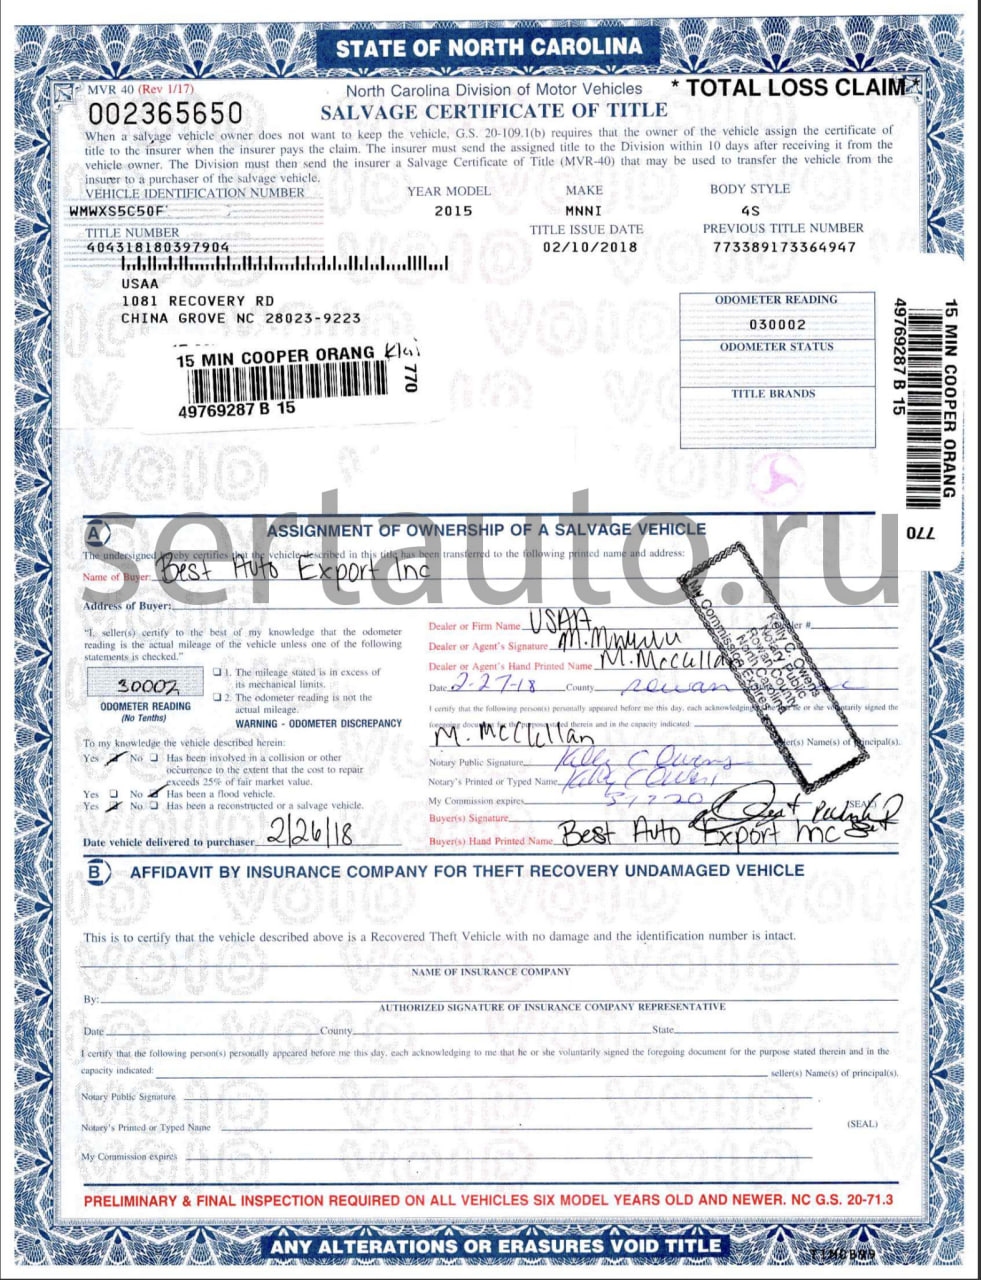 STATE OF NORTH CAROLINA
MVR 40 (Rev 1/17)
002365650
North Carolina Division of Motor Vehicles
SALVAGE CERTIFICATE OF TITLE
* TOTAL LOSS CLAIM *
When a salvage vehicle owner does not want to keep the vehicle, G.S. 20-109.1(b) requires that the owner of the vehicle assign the certificate of
title to the insurer when the insurer pays the claim. The insurer must send the assigned title to the Division within 10 days after receiving it from the
vehicle owner. The Division must then send the insurer a Salvage Certificate of Title (MVR-40) that may be used to transfer the vehicle from the
insurer to a purchaser of the salvage vehicle.
VEHICLE IDENTIFICATION NUMBER YEAR MODEL MAKE BODY STYLE
WMWXS5C50F 2015 MNNI 4S
TITLE NUMBER TITLE ISSUE DATE PREVIOUS TITLE NUMBER
404318180397904 02/10/2018 773389173364947
USAA
1081 RECOVERY RD
CHINA GROVE NC 28023-9223
ODOMETER READING
030002
ODOMETER STATUS
TITLE BRANDS
15 MIN COOPER ORANG
770
49769287 B 15
15 MIN COOPER ORANG
49769287 B 15
770
sertauto.ru
A ASSIGNMENT OF OWNERSHIP OF A SALVAGE VEHICLE
The undersigned hereby certifies that the vehicle described in this title has been transferred to the following printed name and address:
Name of Buyer: Best Auto Export Inc
Address of Buyer:
"I, seller(s) certify to the best of my knowledge that the odometer
reading is the actual mileage of the vehicle unless one of the following
statements is checked."
30002
ODOMETER READING
(No Tenths)
1. The mileage stated is in excess of
its mechanical limits.
2. The odometer reading is not the
actual mileage.
WARNING - ODOMETER DISCREPANCY
To my knowledge the vehicle described herein:
Yes No Has been involved in a collision or other
occurrence to the extent that the cost to repair
exceeds 25% of fair market value.
Yes No Has been a flood vehicle.
Yes No Has been a reconstructed or a salvage vehicle.
Date vehicle delivered to purchaser 2/26/18
Dealer or Firm Name USAA #
Dealer or Agent's Signature
Dealer or Agent's Hand Printed Name M. McClellan
Date 2-27-18 County rowan
I certify that the following person(s) personally appeared before me this day, each acknowledging he or she voluntarily signed the
foregoing document for the purpose stated therein and in the capacity indicated:
M. McClellan Name(s) of principal(s).
Notary Public Signature Kelly C Owens
Notary's Printed or Typed Name Kelly C Owens
My Commission expires
(SEAL)
Buyer(s) Signature
Buyer(s) Hand Printed Name Best Auto Export Inc
Kelly C. Owens
Notary Public
Rowan County
North Carolina
My Commission Expires
B AFFIDAVIT BY INSURANCE COMPANY FOR THEFT RECOVERY UNDAMAGED VEHICLE
This is to certify that the vehicle described above is a Recovered Theft Vehicle with no damage and the identification number is intact.
NAME OF INSURANCE COMPANY
By:
AUTHORIZED SIGNATURE OF INSURANCE COMPANY REPRESENTATIVE
Date County State
I certify that the following person(s) personally appeared before me this day, each acknowledging to me that he or she voluntarily signed the foregoing document for the purpose stated therein and in the
capacity indicated: seller(s) Name(s) of principal(s).
Notary Public Signature
Notary's Printed or Typed Name (SEAL)
My Commission expires
PRELIMINARY & FINAL INSPECTION REQUIRED ON ALL VEHICLES SIX MODEL YEARS OLD AND NEWER. NC G.S. 20-71.3
ANY ALTERATIONS OR ERASURES VOID TITLE